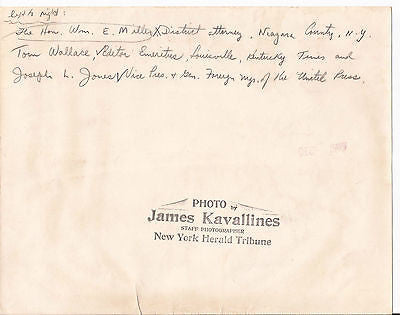 left to right:
The Hon. Wm. E. Miller, District attorney, Niagara County, N.Y.
Tom Wallace, Editor Emeritus, Louisville, Kentucky Times and
Joseph L. Jones, Vice Pres. & Gen. Foreign mgr. of the United Press.
DEC
PHOTO by
James Kavallines
STAFF PHOTOGRAPHER
New York Herald Tribune